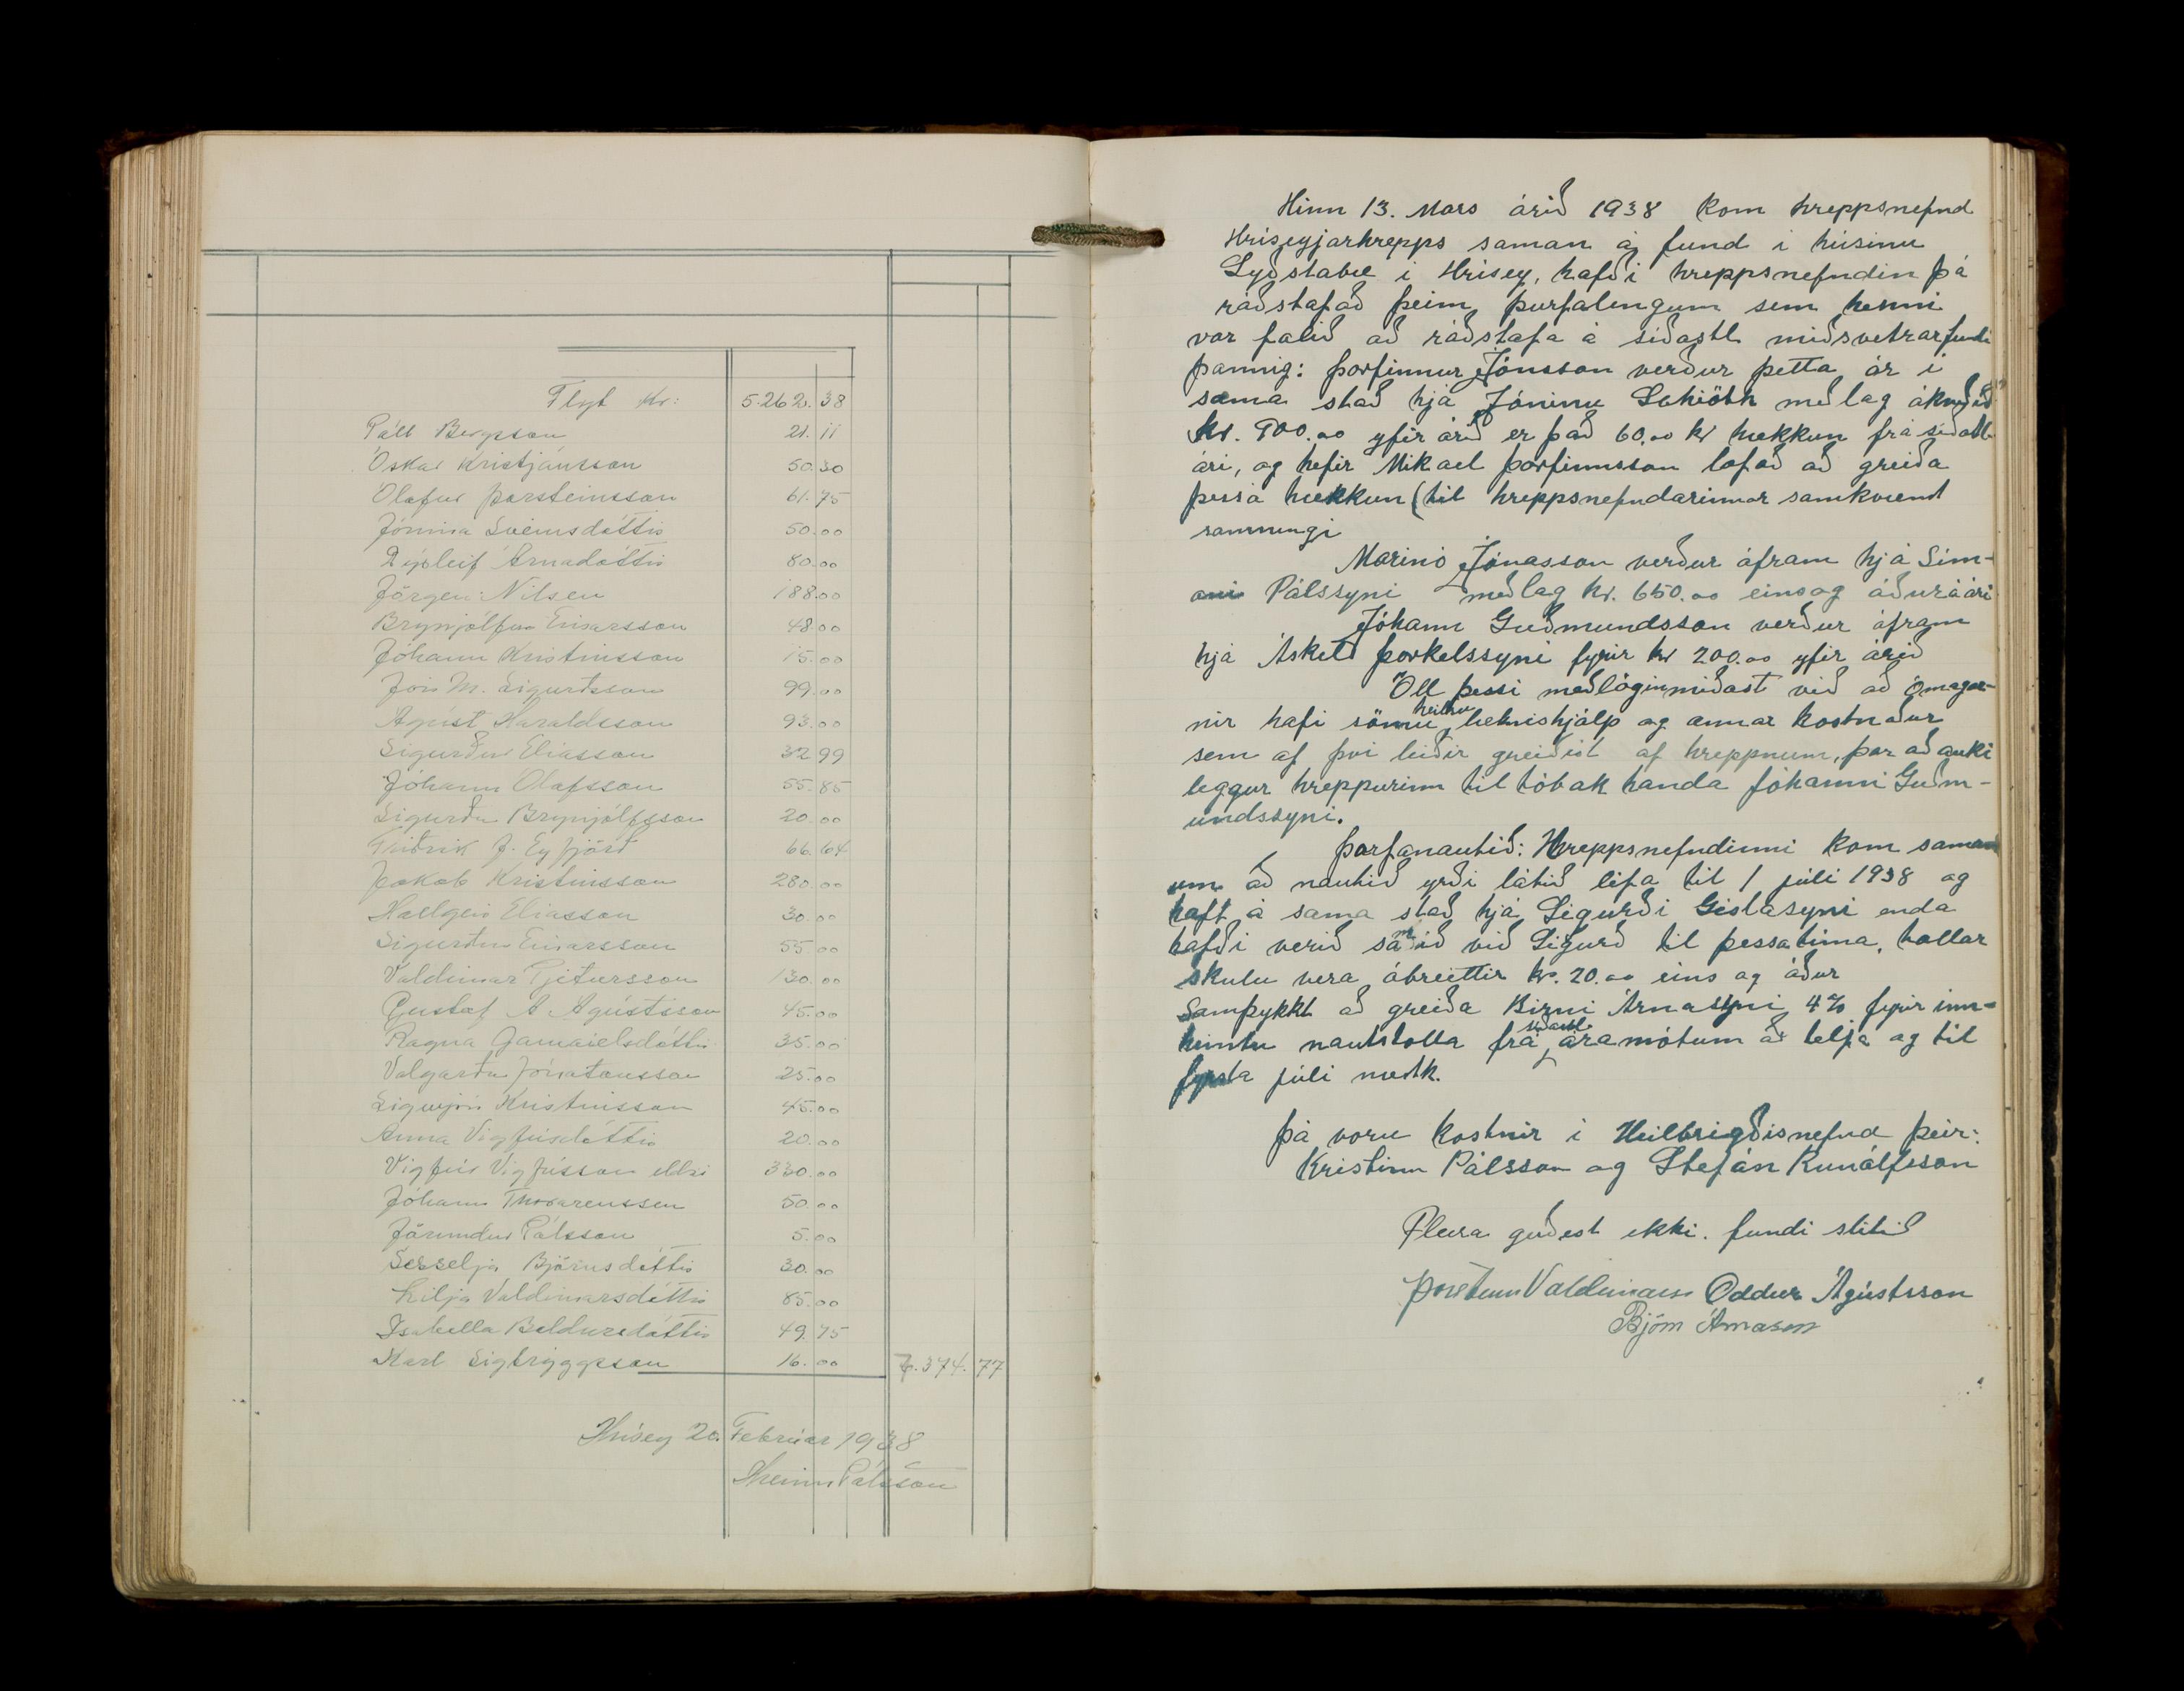 Flyt kr: 5.262.38
Páll Bergsson 21.11
Óskar Kristjánsson 50.30
Ólafur Þorsteinsson 61.75
Jónina Sveinsdóttir 50.00
Dýrleif Árnadóttir 80.00
Jörgen Nilsen 188.00
Brynjólfur Einarsson 48.00
Jóhann Kristinsson 15.00
Jón M. Sigurðsson 99.00
Ágúst Haraldsson 93.00
Sigurður Elíasson 32.99
Jóhann Ólafsson 55.85
Sigurður Brynjólfsson 20.00
Friðrik J. Eyfjörð 66.64
Jakob Kristinsson 280.00
Hallgrír Elíasson 30.00
Sigurður Einarsson 55.00
Valdimar Pjetursson 130.00
Gustaf A Ágústsson 45.00
Ragna Gamaíelsdóttir 35.00
Valgarður Jónatansson 25.00
Sigurjón Kristinsson 45.00
Anna Vigfúsdóttir 20.00
Vigfús Vigfússon eldri 330.00
Jóhann Thorarenssen 50.00
Jörundur Pálsson 5.00
Sesselja Björnsdóttir 30.00
Lilja Valdimarsdóttir 85.00
Ísabella Baldursdóttir 49.75
Karl Sigtryggsson 16.00 7.374.77
Hrísey 20. Febrúar 1938
Hreinn Pálsson
Hinn 13. Mars árið 1938 kom hreppsnefnd
Hríseyjarhrepps saman á fund í húsinu
Syðstabæ í Hrísey, hafði hreppsnefndin þá
ráðstafað þeim þurfalingum sem henni
var falið að ráðstafa á síðastl. miðsvetrarfundi
þannig: Þorfinnur Jónsson verður þetta ár í
sama stað hjá Jóninu Schiöth meðlag ákveðið
kr. 900.00 yfir árið er það 60.00 kr hækkun frá síðastl.
ári, og hefir Mikael Þorfinnsson lofað að greiða
þessa hækkun (til hreppsnefndarinnar samkvæmt
samningi
Marinó Jónasson verður áfram hjá Sím-
oni Pálssyni meðlag kr. 650.00 eins og áður á ári
Jóhann Guðmundsson verður áfram
hjá Áskeli Þorkelssyni fyrir kr 200.00 yfir árið
Öll þessi meðlögin miðast við að ómagar-
nir hafi sömu heilsu, læknishjálp og annar kostnaður
sem af því leiðir greiðist af hreppnum, þar að auki
leggur hreppurinn til tóbak handa Jóhanni Guðm-
undssyni.
Þarfanautið: Hreppsnefndinni kom saman
um að nautið yrði látið lifa til 1 júlí 1938 og
haft á sama stað hjá Sigurði Gíslasyni enda
hafði verið samið við Sigurð til þessa tíma, tollar
skulu vera óbreittir kr. 20.00 eins og áður
Samþykkt að greiða Birni Árnasyni 4% fyrir inn-
heimtu nautstolla frá síðastl. áramótum að telja og til
fyrsta júlí næstk.
Þá voru kostnir í Heilbrigðisnefnd þeir:
Kristinn Pálsson og Stefán Runólfsson
Fleira gerðest ekki. fundi slitið
Þorsteinn Valdimarss Oddur Ágústsson
Björn Árnason